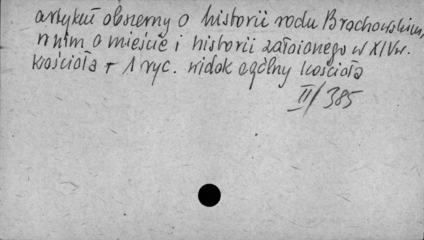 artykuł obszerny o historii rodu Brochowskim,
w nim o mieście i historii założonego w XIV w.
kościoła + 1 ryc. widok ogólny kościoła
II/385